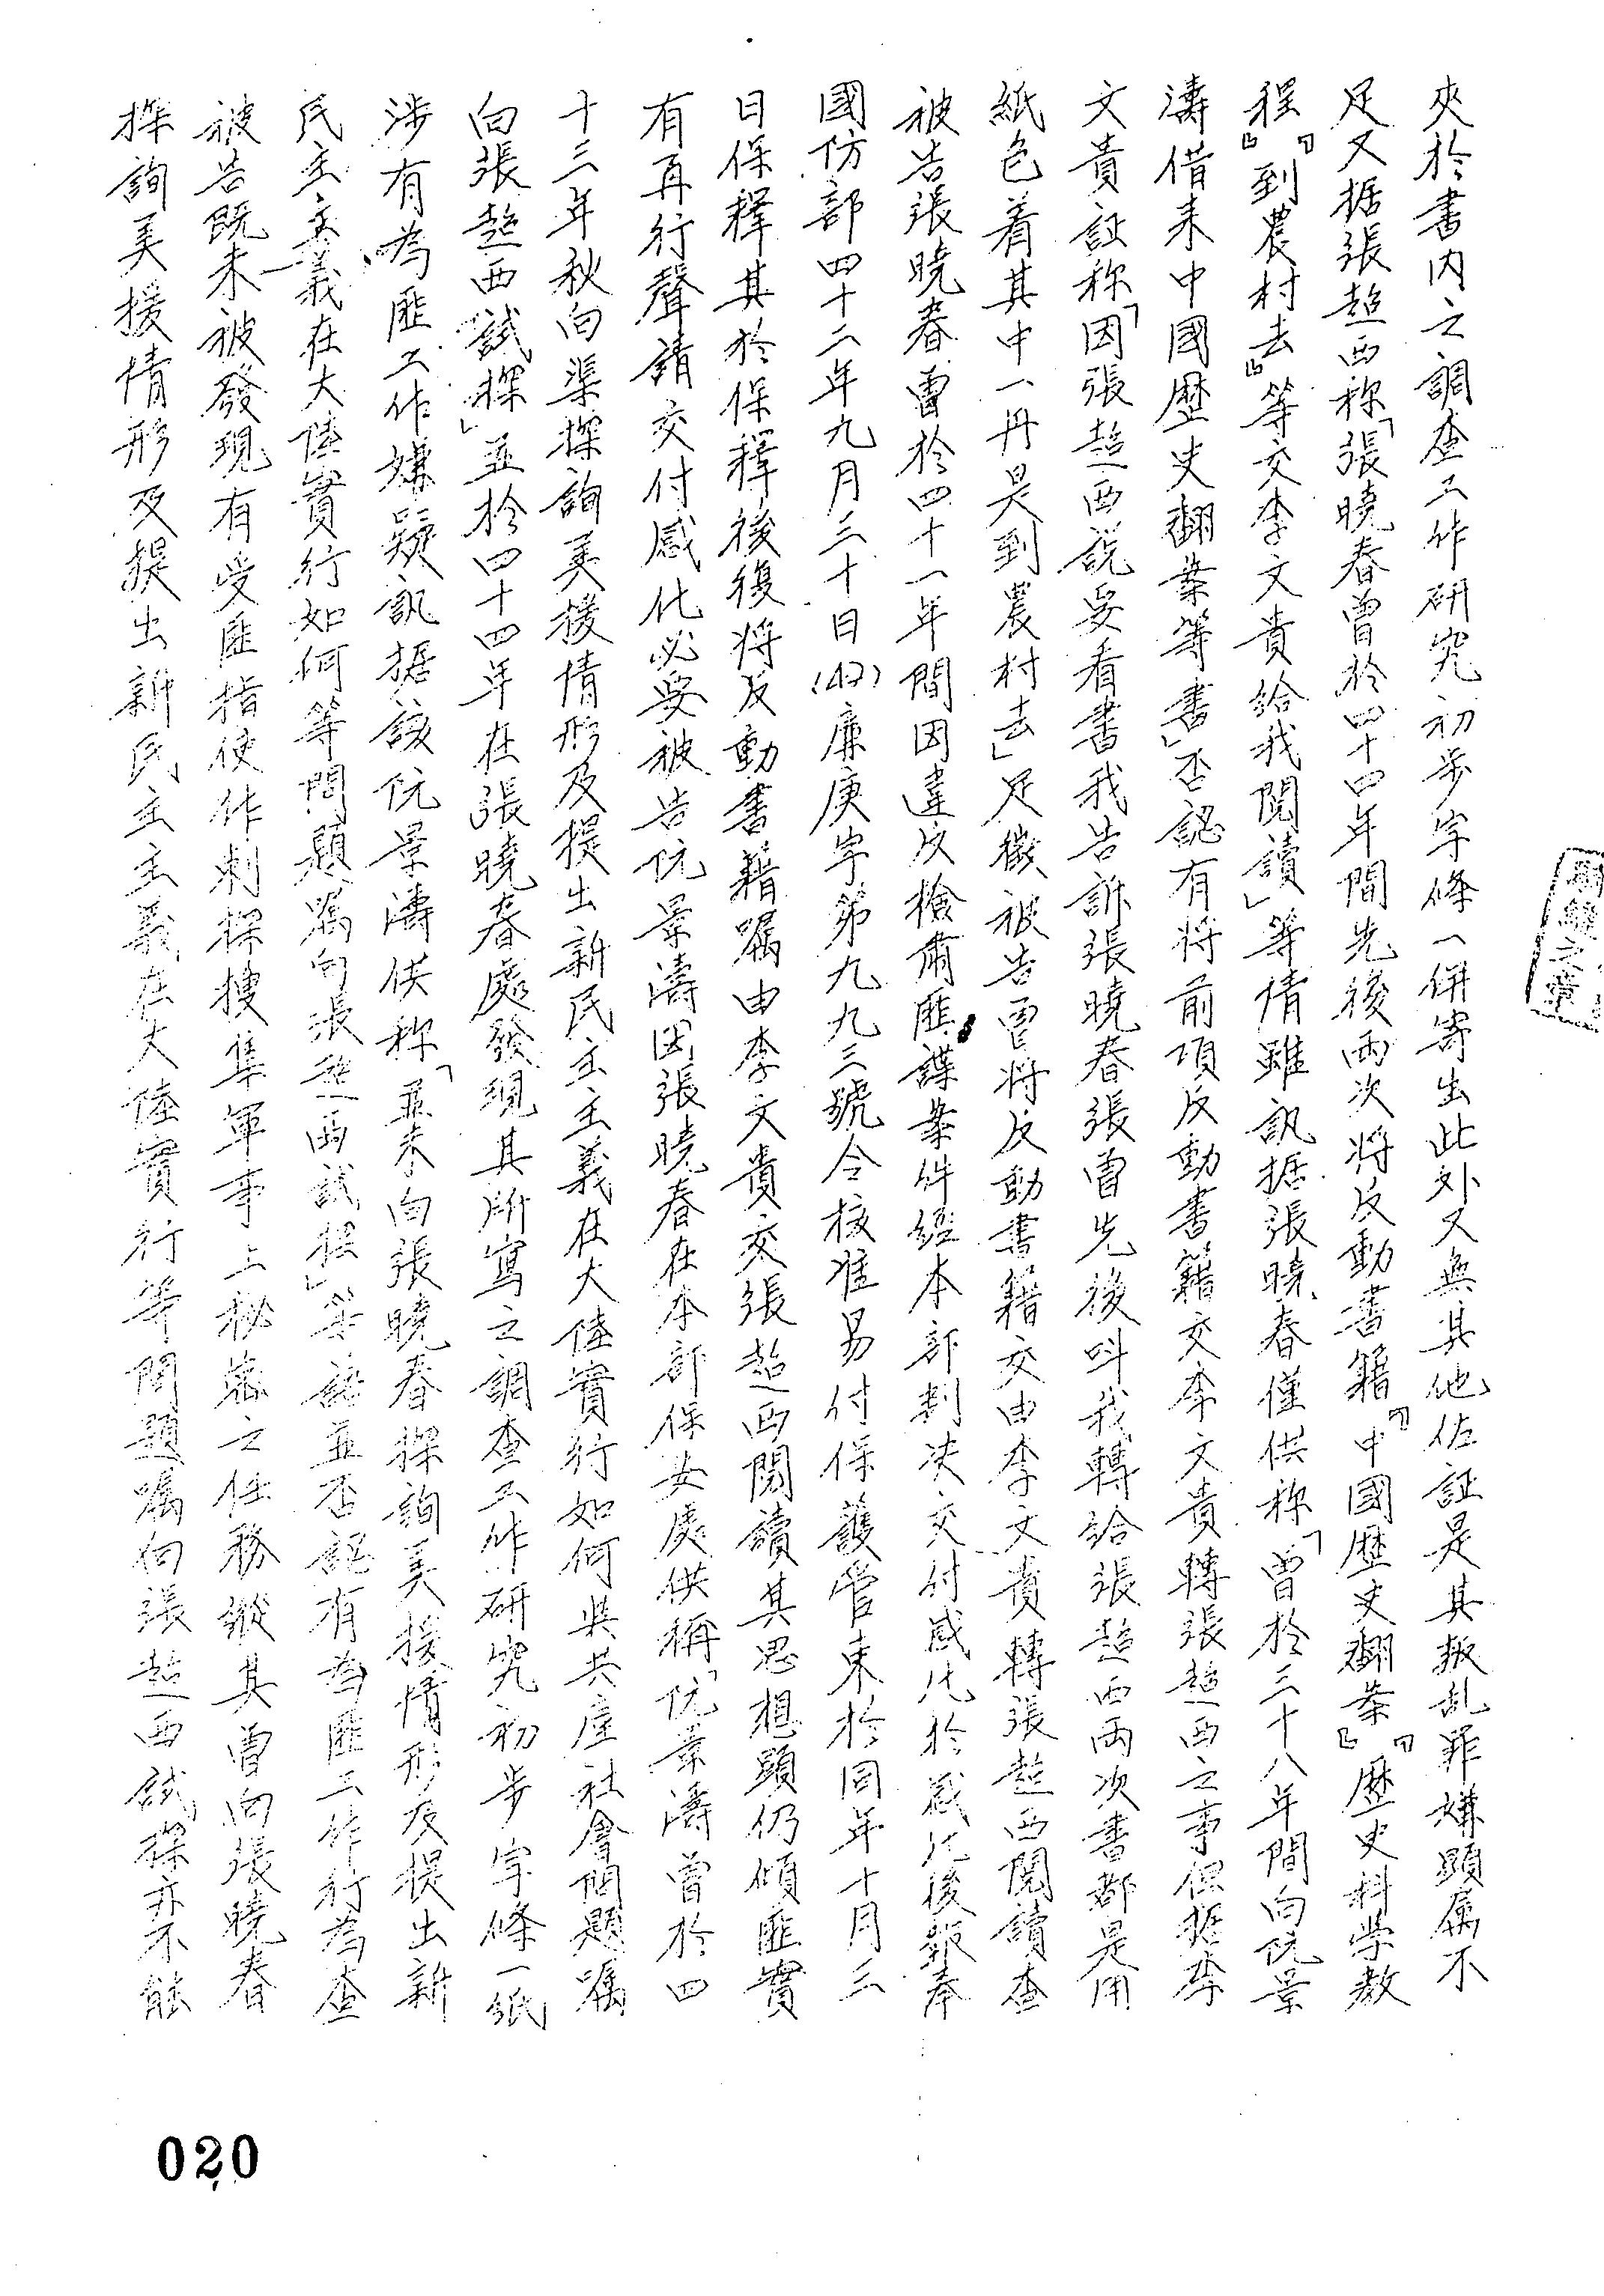 夾於書內之調查工作研究初步字條一併寄出此外又無其他佐証是其叛乱罪嫌顕属不
足又据張趋西称「張曉春曾於四十四年間先後兩次將反動書籍『中國歷史翻案』『歷史科学教
程』『到農村去』等交李文貴給我閱讀」等情雖訊据張曉春僅供称「曾於三十八年間向伉景
濤借来中國歷史翻案等書」否認有將前項反動書籍交李文貴轉張趋西之事但据李
文貴証称「因張趋西説要看書我告訴張曉春張曾先後叫我轉給張趋西兩次書都是用
紙包着其中一冊是到農村去」足徵被告曾將反動書籍交由李文貴轉張趋西閱讀查
被告張曉春曾於四十一年間因違反檢肅匪諜案件經本部判决交付感化於感化後報奉
國防部四十二年九月三十日(42)廉庚字第九九三號令核准易付保護管束於同年十月三
日保釋其於保釋後復將反動書籍囑由李文貴交張趋西閱讀其思想顕仍傾匪實
有再行聲請交付感化必要被告伉景濤因張曉春在本部保安處供稱「伉景濤曾於四
十三年秋向渠探詢美援情形及提出新民主主義在大陸實行如何與共產社會問題囑
向張趋西試探」並於四十四年在張曉春處發現其所寫之調查工作研究初步字條一紙
涉有為匪工作嫌疑訊据該伉景濤供称「並未向張曉春探詢美援情形及提出新
民主主義在大陸實行如何等問題囑向張趋西試探」等語並否認有為匪工作行為查
被告既未被發現有受匪指使作刺探搜集軍事上秘密之任務縱其曾向張曉春
探詢美援情形及提出新民主主義在大陸實行等問題囑向張趋西試探亦不能
之章
020